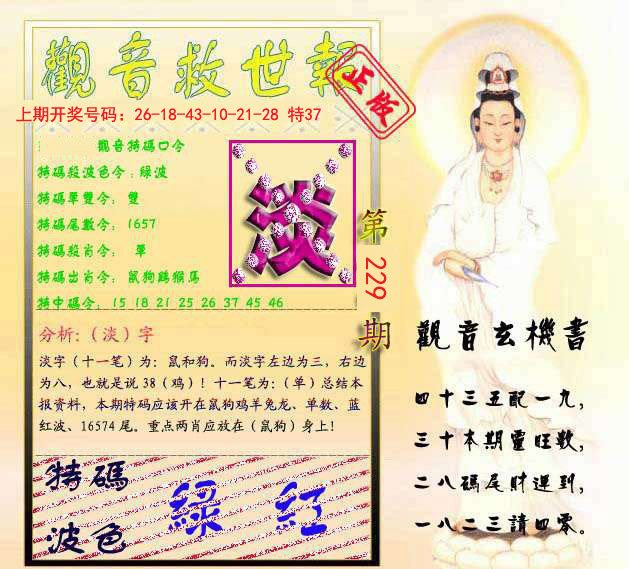 觀音救世報
正版
上期开奖号码：26-18-43-10-21-28 特37
觀音特碼口令
特碼殺波色令：綠波
特碼單雙令：雙
特碼尾數令：1657
特碼殺肖令：單
特碼出肖令：鼠狗鷄猴馬
特中碼令：15 18 21 25 26 37 45 46
淡
第
229
期
分析：（淡）字
淡字（十一笔）为：鼠和狗。而淡字左边为三，右边
为八，也就是说 38（鸡）！十一笔为：（单）总结本
报资料，本期特码应该开在鼠狗鸡羊兔龙、单数、蓝
红波、16574 尾。重点两肖应放在（鼠狗）身上！
特碼
波色
綠 紅
觀音玄機書
四十三五配一九，
三十本期靈旺數，
二八碼尾財運到，
一八二三請四零。